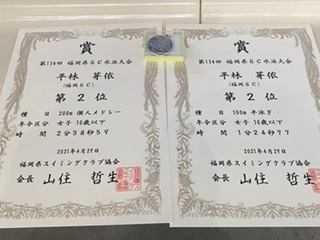 賞
第134回 福岡県SC水泳大会
平林 芽依
(福岡SC)
第2位
種目 200m 個人メドレー
年令区分 女子 10歳以下
時間 2分38秒57
2021年4月29日
福岡県スイミングクラブ協会
会長 山住 哲生
賞
第134回 福岡県SC水泳大会
平林 芽依
(福岡SC)
第2位
種目 100m 平泳ぎ
年令区分 女子 10歳以下
時間 1分24秒77
2021年4月29日
福岡県スイミングクラブ協会
会長 山住 哲生